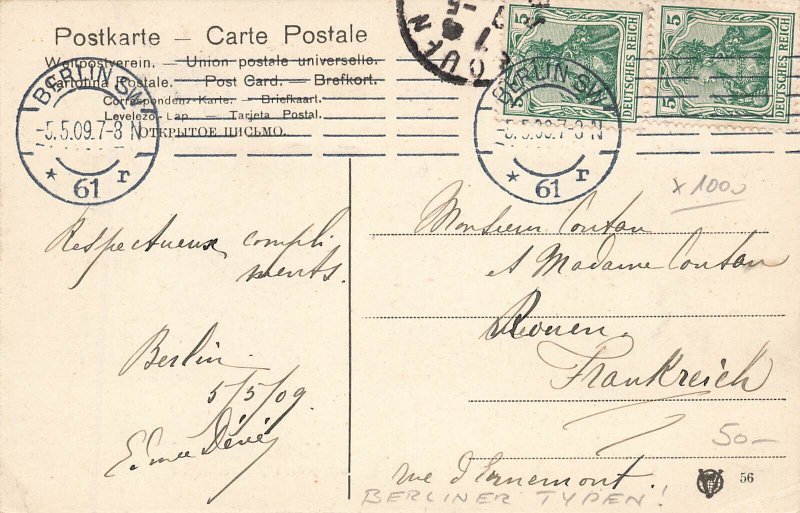 Postkarte — Carte Postale
Weltpostverein. - Union postale universelle.
Cartolina Postale. - Post Card. — Brefkort.
Correspondenz-Karte. - Briefkaart.
Levelezö-Lap. — Tarjeta Postal.
ОТКРЫТОЕ ПИСЬМО.
BERLIN SW
-5.5.09.7-8 N
* 61 r
OUEN
5 DEUTSCHES REICH
5 DEUTSCHES REICH
BERLIN SW
-5.5.09.7-8 N
* 61 r
x 1000
Respectueux compli
ments.
Berlin
5/5/09
Monsieur Coutan
et Madame Coutan
Rouen.
Frankreich
50—
rue d'Ernemont.
BERLINER TYPEN!
56